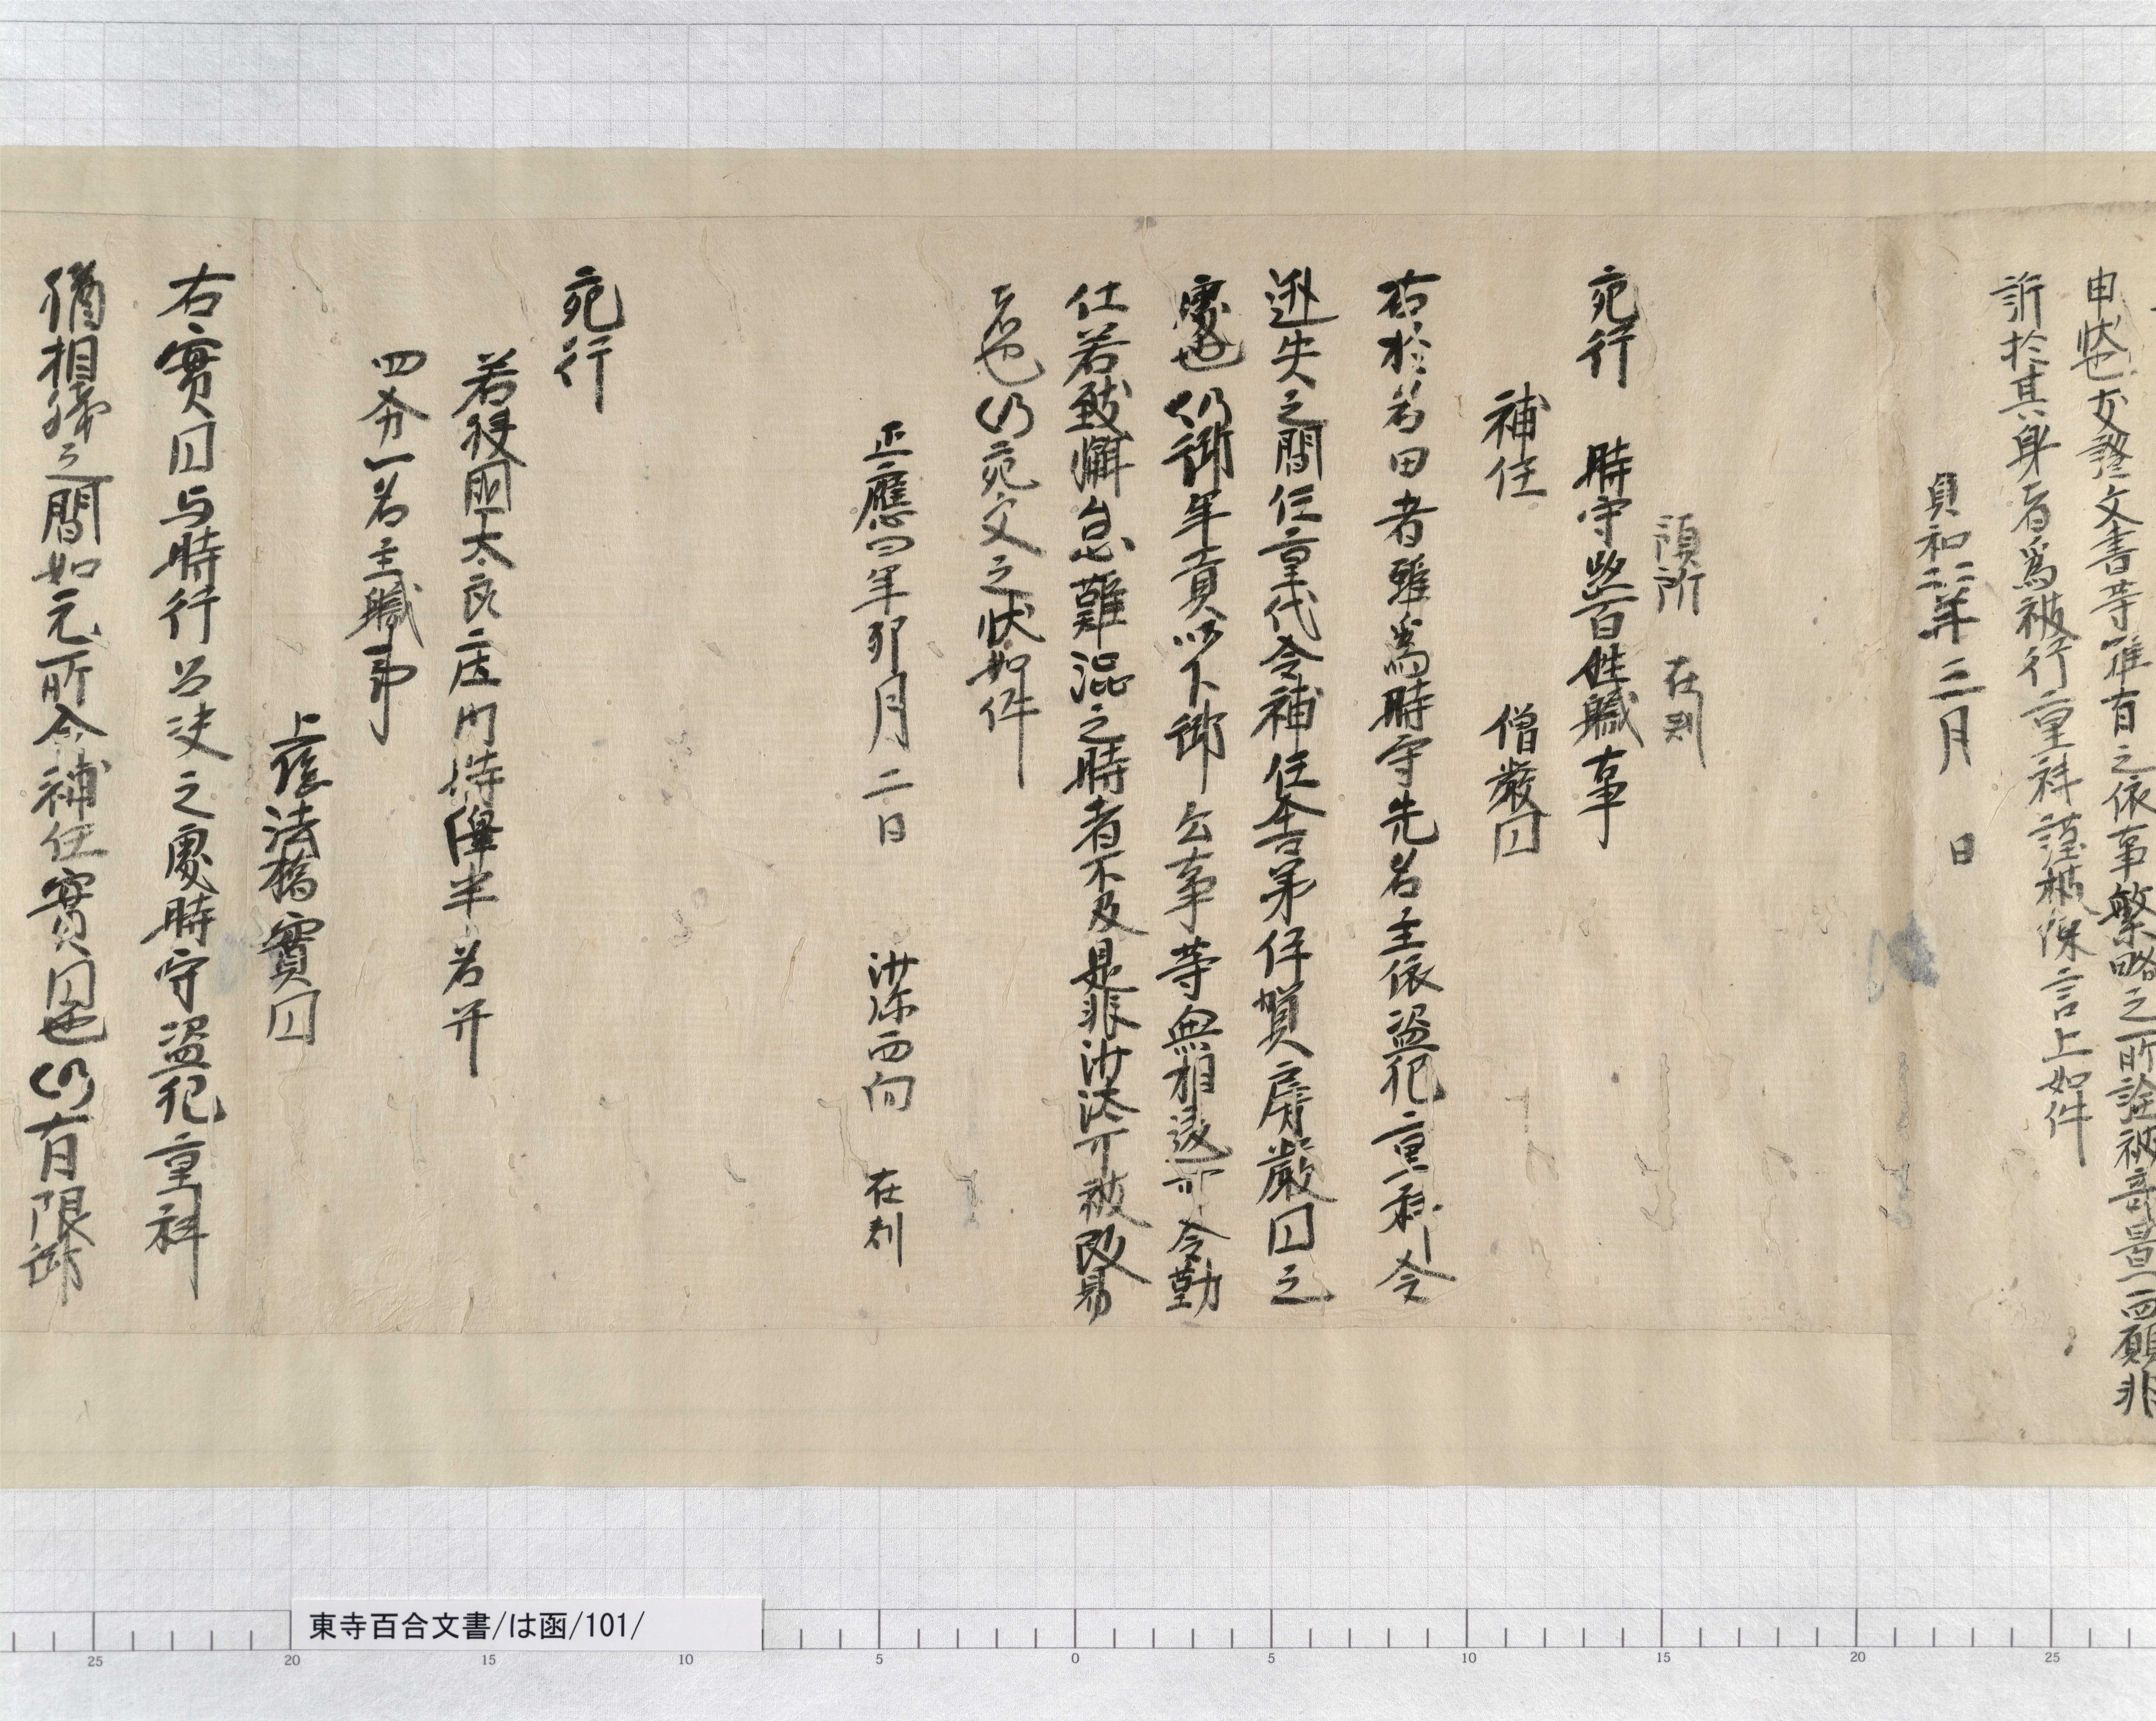 申状也、支證文書等雖有之、依事繁略之、所詮被棄置一向顧非
訴、於其身者、爲被行重科、謹披陳言上如件
貞和二二年三月　日
預所　在判
宛行　時守跡百姓職事
補任　僧嚴円
右於名田者、雖爲時守先名主、依盗犯重科、令
逃失之間、任重代、令補任舎弟伊賀房嚴円之
處也、仍御年貢以下御公事等、無相違可令勤
仕、若致懈怠難澁之時者、不及是非沙汰、可被改易
者也、仍宛文之状如件
正應四年卯月二日　沙弥西向　在判
宛行
若狹國太良庄内時澤半名并
四分一名主職事
上座法橋實円
右實円与時行召决之處、時守盗犯重科
猶相殘之間、如元所令補任實円也、仍有限御
東寺百合文書/は函/101/
25 20 15 10 5 0 5 10 15 20 25